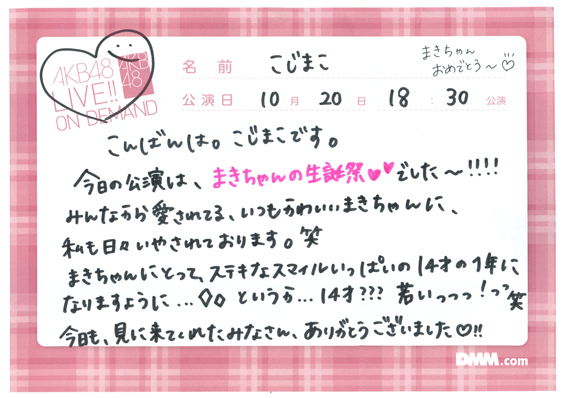 AKB48
LIVE!!
ON DEMAND
AKB
48
名 前 こじまこ
まきちゃん
おめでとう〜♡
公演日 10月 20日 18:30 公演
こんばんは。こじまこです。
今日の公演は、まきちゃんの生誕祭♥♥でした〜!!!!
みんなから愛されてる、いつもかわいいまきちゃんに、
私も日々いやされております。笑
まきちゃんにとって、ステキなスマイルいっぱいの14才の1年に
なりますように…◇◇ というか…14才??? 若いっっっ!っっ笑
今日も、見に来てくれたみなさん、ありがとうございました♡!!
DMM.com